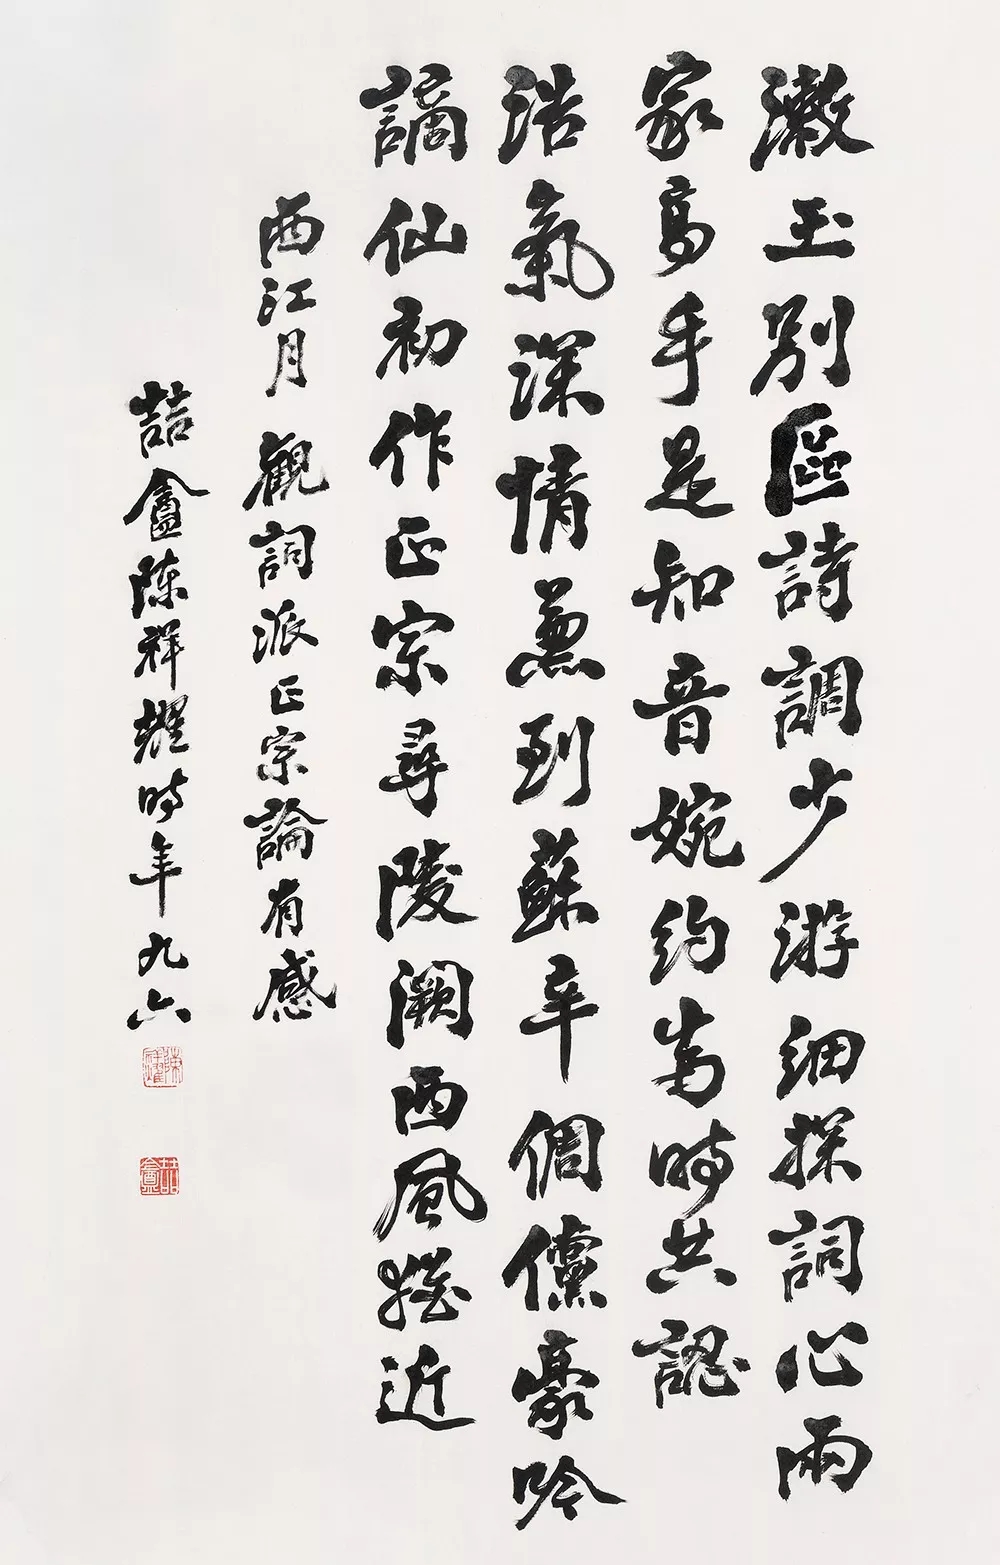 漱玉別區詩調少游細探詞心兩
家高手是知音婉約當時共認
浩氣深情兼到蘇辛倜儻豪吟
謫仙初作正宗尋陵闕西風猶近
西江月 觀詞派正宗論有感
喆盦陳祥耀時年九六
陳祥耀
喆盦